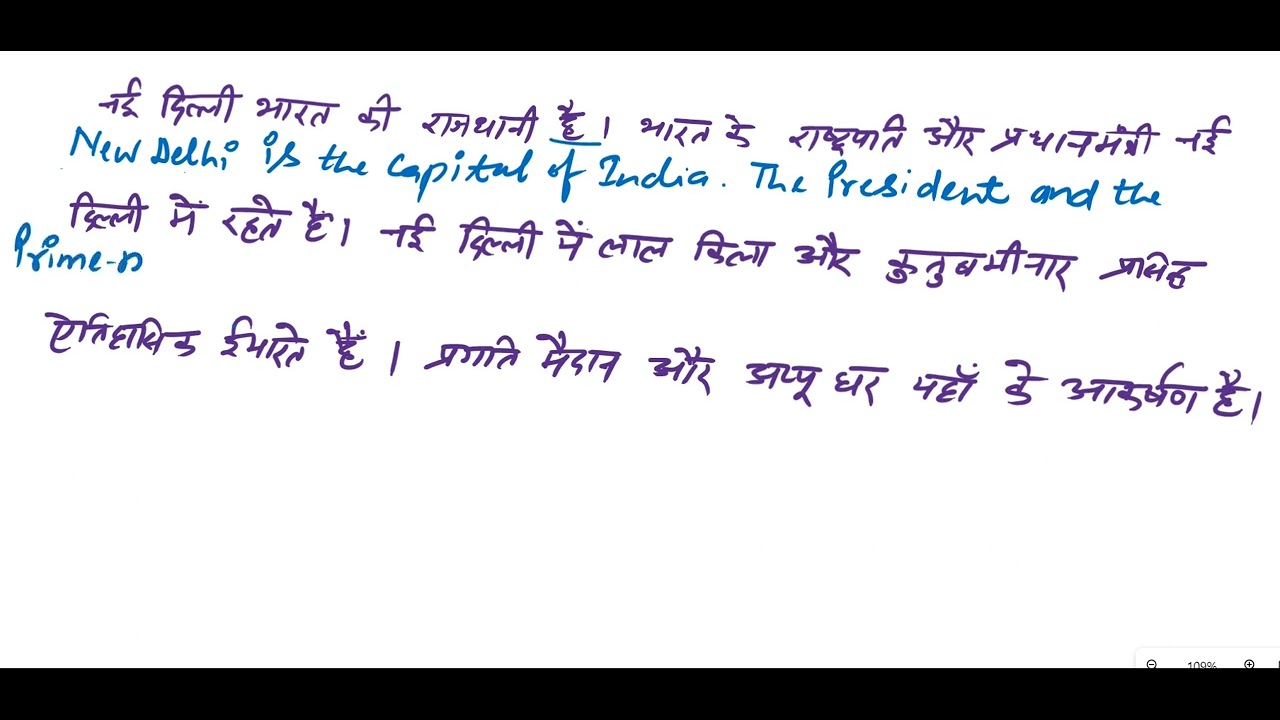 नई दिल्ली भारत की राजधानी है। भारत के राष्ट्रपति और प्रधानमंत्री नई
New Delhi is the capital of India. The President and the
दिल्ली में रहते हैं। नई दिल्ली में लाल किला और कुतुबमीनार प्रसिद्ध
Prime-n
ऐतिहासिक ईमारते हैं। प्रगति मैदान और अप्पू घर यहाँ के आकर्षण है।
109%